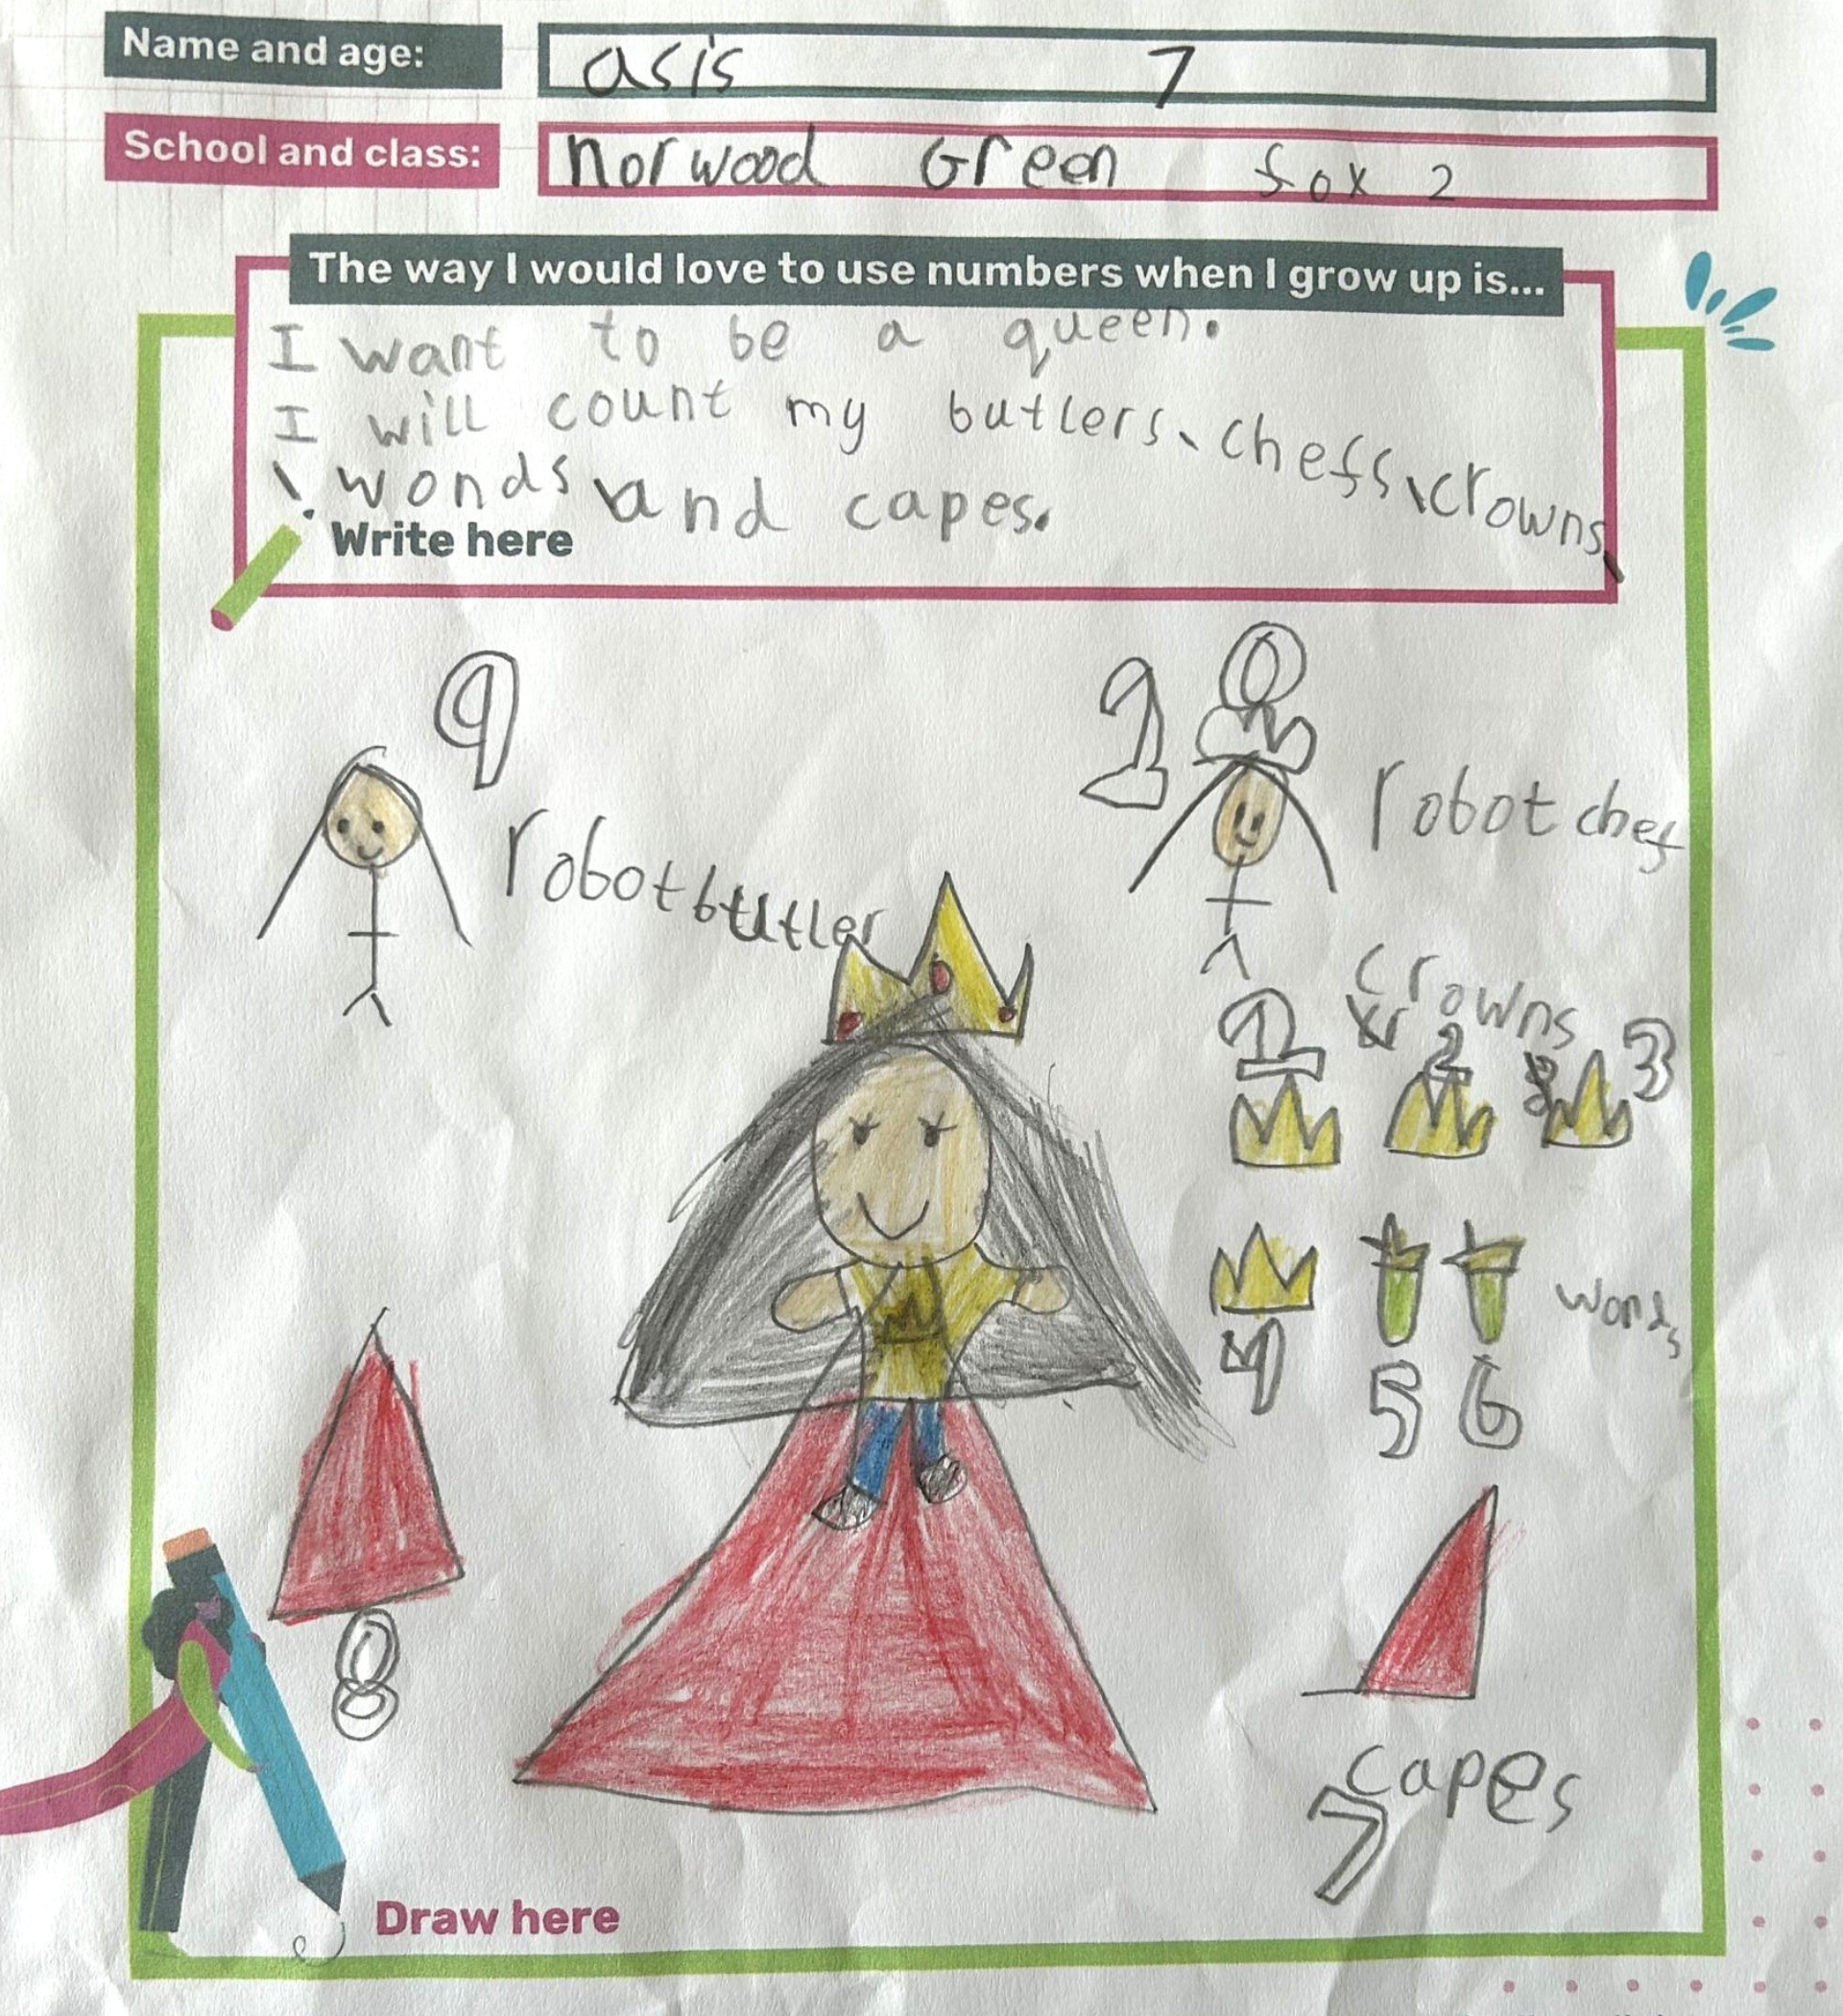 Name and age: asis 7
School and class: norwood Green fox 2
The way I would love to use numbers when I grow up is...
I want to be a queen.
I will count my butlers, chefs, crowns,
wonds and capes.
Write here
9
robot butler
10
robot chef
crowns
1 2 3
4 5 6
wonds
8
capes
7
Draw here